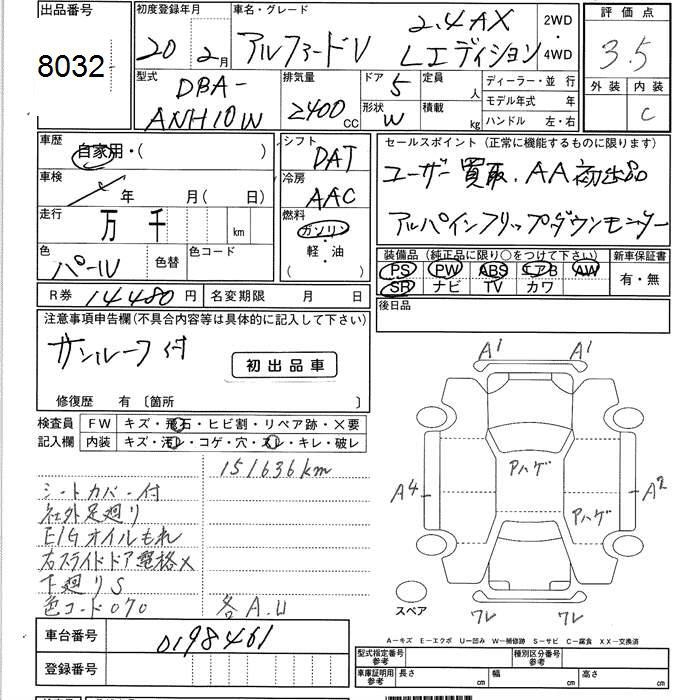 出品番号
8032
初度登録年月
20 2月
車名・グレード
アルファードV 2.4AX
Lエディション
2WD
・
4WD
評価点
3.5
外装 内装
C
型式
DBA-
ANH10W
排気量
2400 CC
ドア 5
形状 W
定員 人
積載 kg
ディーラー・並 行
モデル年式 年
ハンドル 左・右
車歴
自家用・( )
車検
年 月( 日)
走行
万 千 km
色
パール
色替
色コード
シフト
DAT
冷房
AAC
燃料
ガソリン
・
軽・油
セールスポイント (正常に機能するものに限ります)
ユーザー買取.AA初出品
アルパインフリップダウンモニター
装備品 (純正品に限り○をつけて下さい)
PS PW ABS エアB AW
SR ナビ TV カワ
新車保証書
有・無
R券 14480円
名変期限 月 日
後日品
注意事項申告欄(不具合内容等は具体的に記入して下さい)
サンルーフ付
初出品車
修復歴 有 〔箇所 〕
検査員
記入欄
FW キズ・飛石・ヒビ割・リペア跡・×要
内装 キズ・汚レ・コゲ・穴・スレ・キレ・破レ
151636km
シートカバー付
社外足廻り
E/Gオイルもれ
右スライドドア電格×
下廻りS
色コード070
各A.U
A1 A1
Aハゲ
A4
A2
Aハゲ
スペア
ワレ ワレ
A-キズ E-エクボ U-凹み W-補修跡 S-サビ C-腐食 XX-交換済
車台番号
0198461
登録番号
型式指定番号
参考
種別区分番号
参考
車庫証明用
参考
長さ cm
幅 cm
高さ cm